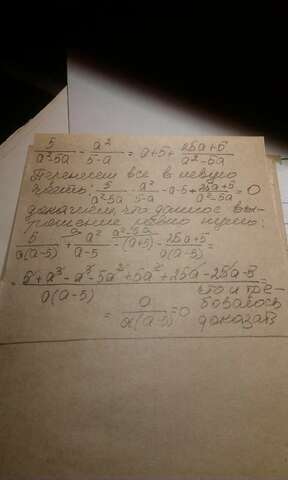 5/(a²-5a) - a²/(5-a) = a+5+ (25a+5)/(a²-5a)
Перенесем все в левую
часть: 5/(a²-5a) - a²/(5-a) -a-5+ (25a+5)/(a²-5a) =0
докажем, что данное вы-
ражение равно нулю:
5/(a(a-5)) + a²/(a-5) - (a+5) - (25a+5)/(a(a-5)) =
= (5+a³-a³-5a²+5a²+25a-25a-5)/(a(a-5)) что и тре-
= 0/(a(a-5)) =0 бовалось
доказать